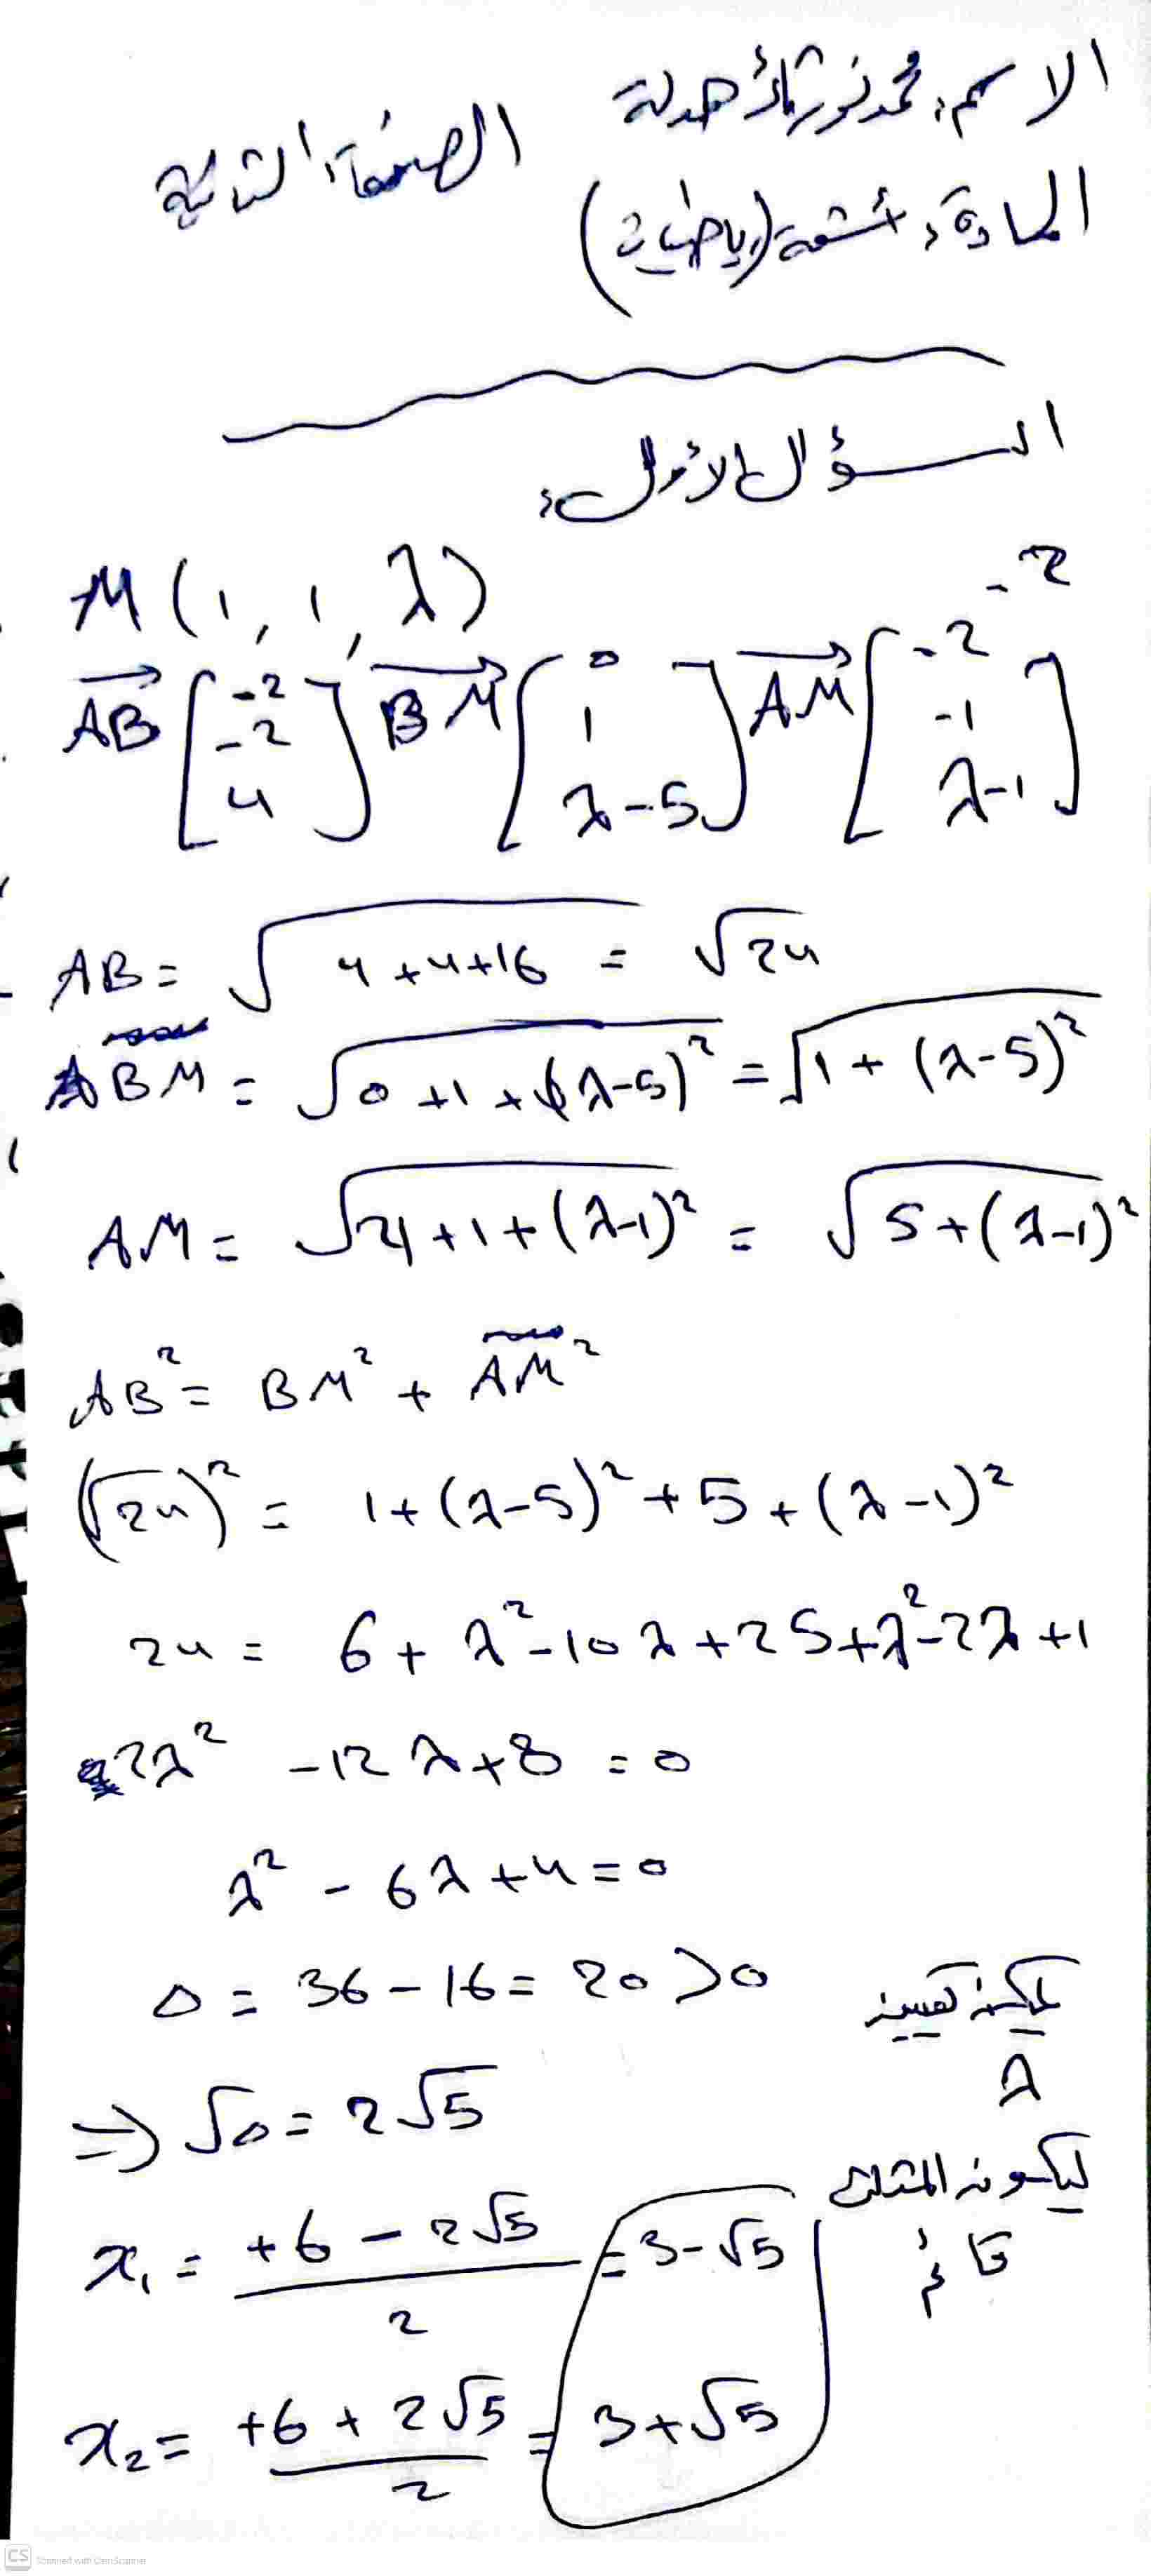 الاسم: محمد نور
الصفحة الثانية
المادة: أتمتة (رياضيات)
السؤال الأول:
M(1, 1, λ)
-2
AB [-2 -2 4] BM [0 1 λ-5] AM [-2 -1 λ-1]
AB = √4+4+16 = √24
BM = √0+1+(λ-5)² = √1+(λ-5)²
AM = √4+1+(λ-1)² = √5+(λ-1)²
AB² = BM² + AM²
(√24)² = 1+(λ-5)²+5+(λ-1)²
24 = 6+λ²-10λ+25+λ²-2λ+1
2λ² -12λ+8 = 0
λ² - 6λ+4=0
Δ = 36-16 = 20 > 0
يمكن تعيين
λ
ليكون المثلث
قائم
⇒ √Δ = 2√5
x₁ = +6 - 2√5 / 2 = 3-√5
x₂ = +6 + 2√5 / 2 = 3+√5
CS Scanned with CamScanner